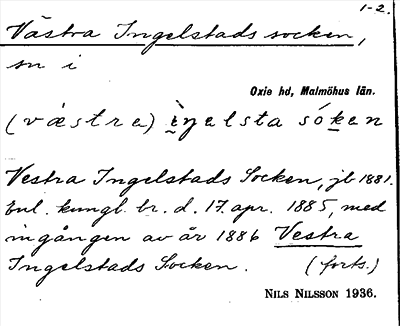 1-2.
Västra Ingelstads socken,
sn i
Oxie hd, Malmöhus län.
(västra) ìŋelsta sóken
Vestra Ingelstads Socken, jb 1881.
Enl. kungl. br. d. 17. apr. 1885, med
ingången av år 1886 Vestra
Ingelstads Socken. (forts.)
NILS NILSSON 1936.